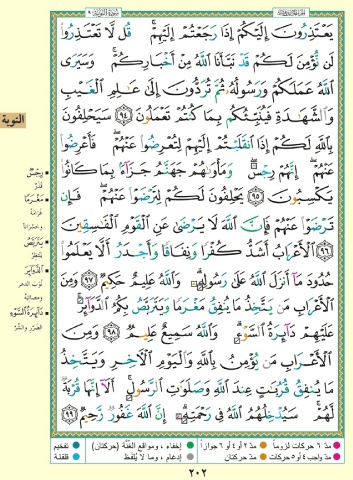 سورة التوبة ٩
يَعْتَذِرُونَ إِلَيْكُمْ إِذَا رَجَعْتُمْ إِلَيْهِمْ ۚ قُل لَّا تَعْتَذِرُوا۟
لَن نُّؤْمِنَ لَكُمْ قَدْ نَبَّأَنَا ٱللَّهُ مِنْ أَخْبَارِكُمْ ۚ وَسَيَرَى
ٱللَّهُ عَمَلَكُمْ وَرَسُولُهُۥ ثُمَّ تُرَدُّونَ إِلَىٰ عَٰلِمِ ٱلْغَيْبِ
وَٱلشَّهَٰدَةِ فَيُنَبِّئُكُم بِمَا كُنتُمْ تَعْمَلُونَ ٩٤ سَيَحْلِفُونَ
بِٱللَّهِ لَكُمْ إِذَا ٱنقَلَبْتُمْ إِلَيْهِمْ لِتُعْرِضُوا۟ عَنْهُمْ ۖ فَأَعْرِضُوا۟
عَنْهُمْ ۖ إِنَّهُمْ رِجْسٌ ۖ وَمَأْوَىٰهُمْ جَهَنَّمُ جَزَآءًۢ بِمَا كَانُوا۟
يَكْسِبُونَ ٩٥ يَحْلِفُونَ لَكُمْ لِتَرْضَوْا۟ عَنْهُمْ ۖ فَإِن
تَرْضَوْا۟ عَنْهُمْ فَإِنَّ ٱللَّهَ لَا يَرْضَىٰ عَنِ ٱلْقَوْمِ ٱلْفَٰسِقِينَ
٩٦ ٱلْأَعْرَابُ أَشَدُّ كُفْرًا وَنِفَاقًا وَأَجْدَرُ أَلَّا يَعْلَمُوا۟
حُدُودَ مَآ أَنزَلَ ٱللَّهُ عَلَىٰ رَسُولِهِۦ ۗ وَٱللَّهُ عَلِيمٌ حَكِيمٌ ٩٧ وَمِنَ
ٱلْأَعْرَابِ مَن يَتَّخِذُ مَا يُنفِقُ مَغْرَمًا وَيَتَرَبَّصُ بِكُمُ ٱلدَّوَآئِرَ ۚ
عَلَيْهِمْ دَآئِرَةُ ٱلسَّوْءِ ۗ وَٱللَّهُ سَمِيعٌ عَلِيمٌ ٩٨ وَمِنَ
ٱلْأَعْرَابِ مَن يُؤْمِنُ بِٱللَّهِ وَٱلْيَوْمِ ٱلْءَاخِرِ وَيَتَّخِذُ
مَا يُنفِقُ قُرُبَٰتٍ عِندَ ٱللَّهِ وَصَلَوَٰتِ ٱلرَّسُولِ ۚ أَلَآ إِنَّهَا قُرْبَةٌ
لَّهُمْ ۚ سَيُدْخِلُهُمُ ٱللَّهُ فِى رَحْمَتِهِۦٓ ۗ إِنَّ ٱللَّهَ غَفُورٌ رَّحِيمٌ ٩٩
التوبة
رِجْسٌ
قذر
مَغْرَمًا
غرامة
وخسرانا
يَتَرَبَّصُ
ينتظر
الدَّوَائِرَ
نوب الدهر
ومصائبه
دَائِرَةُ السَّوْءِ
الضرر والشر
مدّ ٦ حركات لزوماً
مدّ ٢ أو ٤ أو ٦ جوازاً
إخفاء، ومواقع الغنّة (حركتان)
تفخيم
مدّ واجب ٤ أو ٥ حركات
مدّ حركتان
إدغام، وما لا يُلفظ
قلقلة
٢٠٢